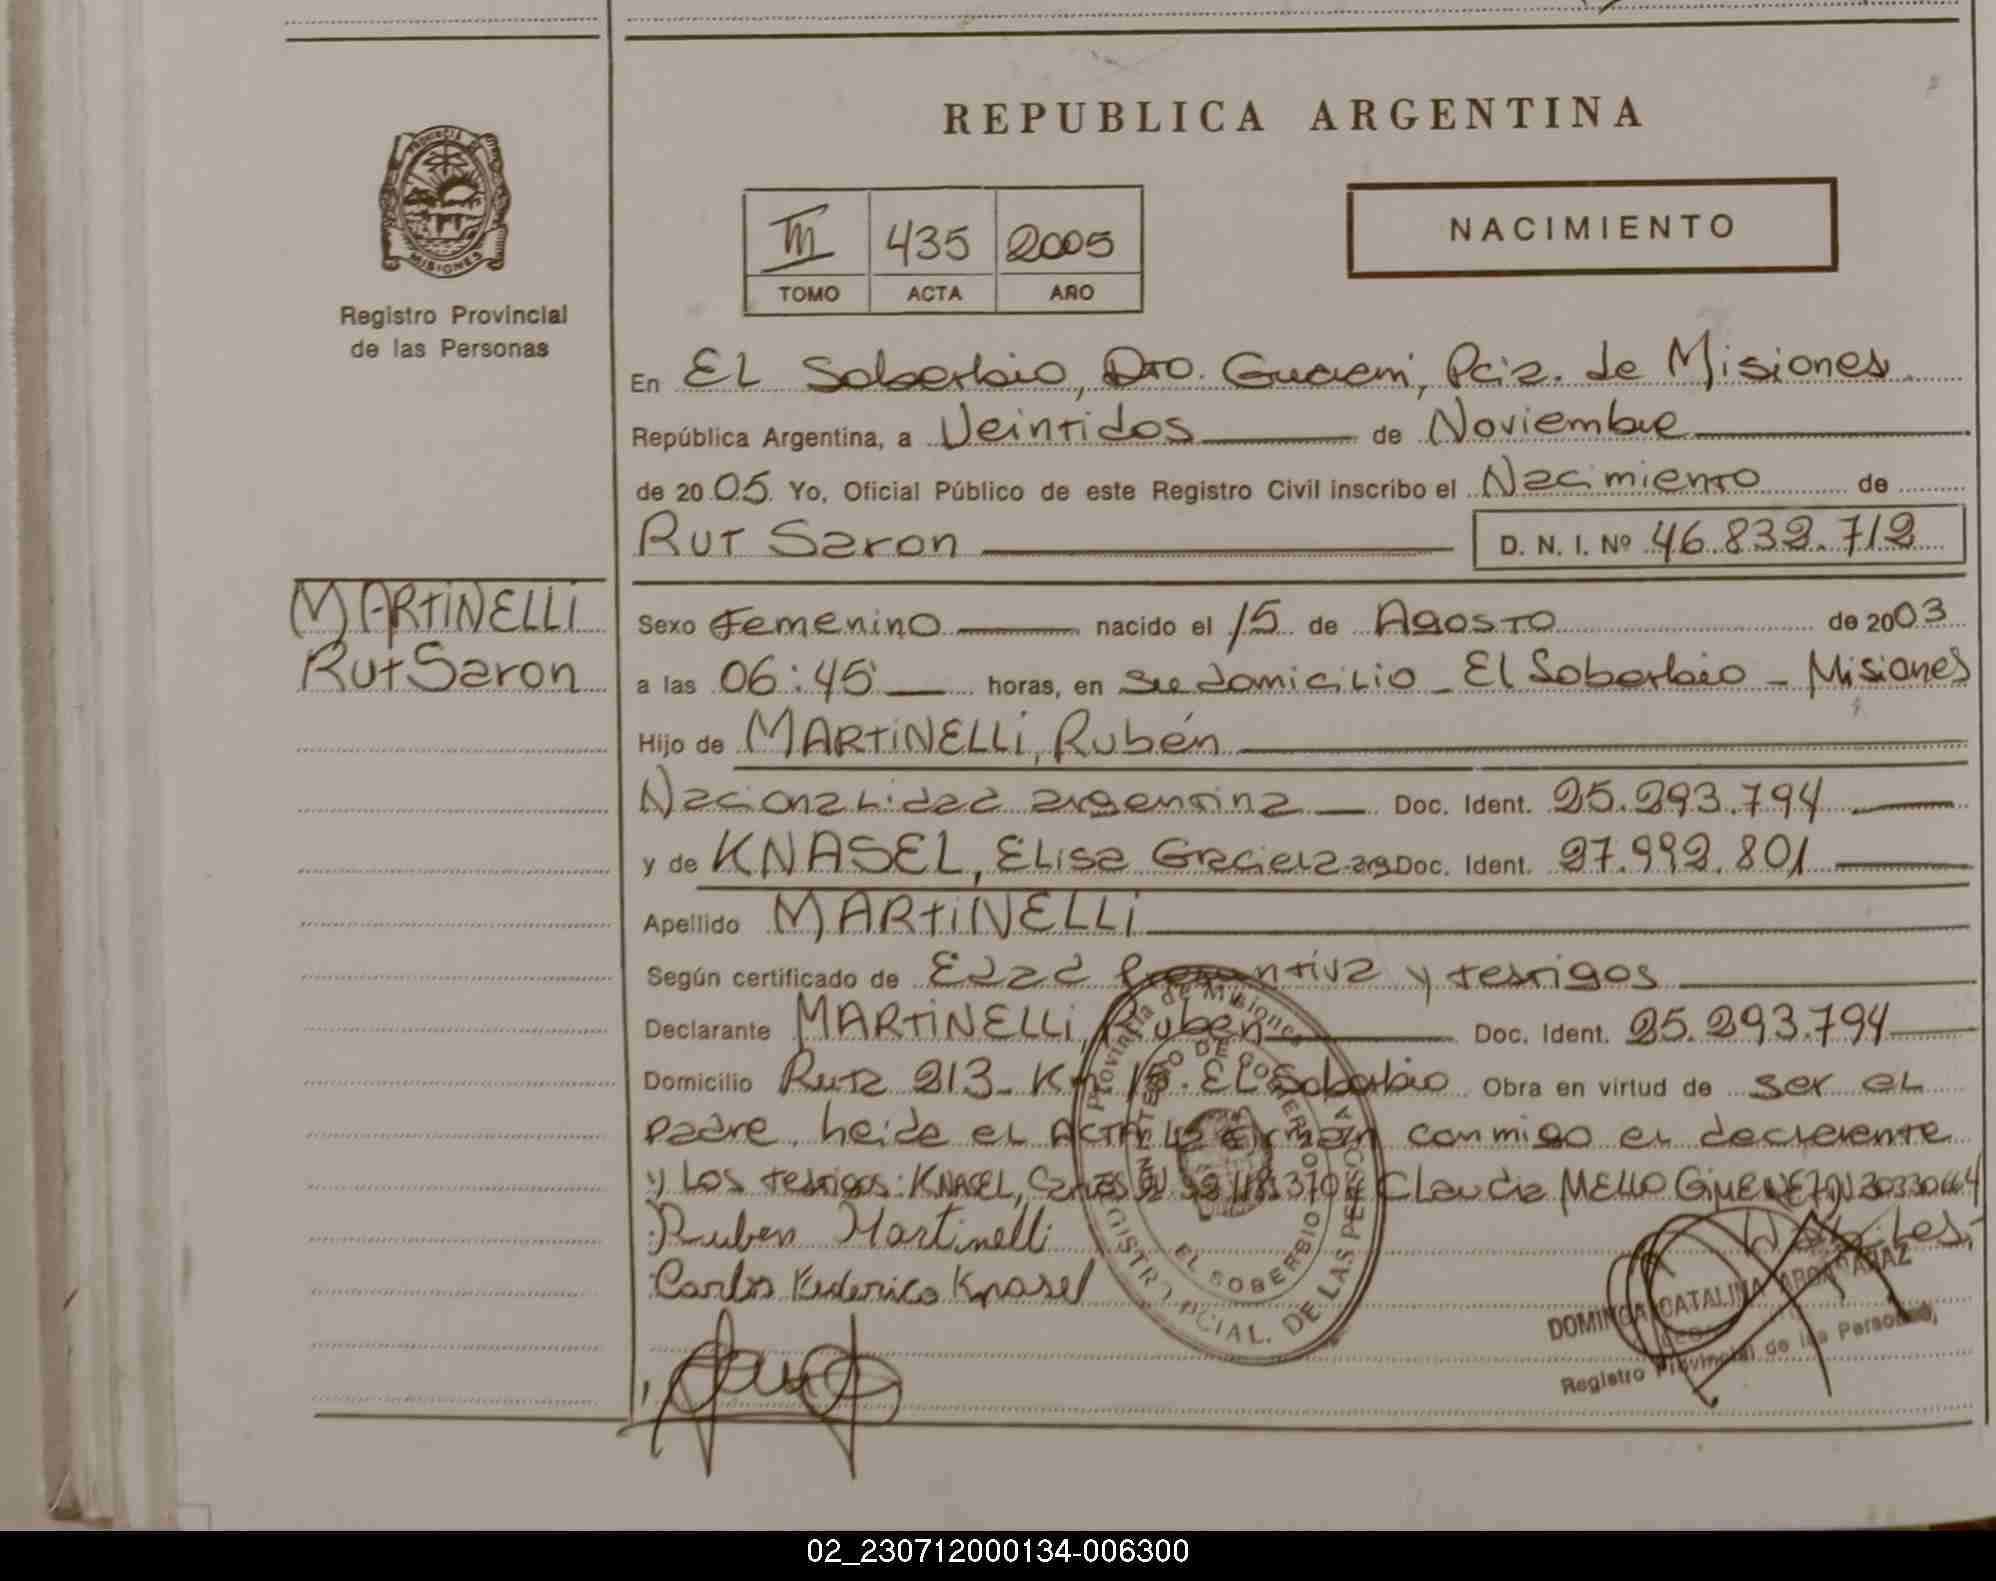 REPUBLICA ARGENTINA
PROVINCIA DE
MISIONES
Registro Provincial
de las Personas
III 435 2005
TOMO ACTA AÑO
NACIMIENTO
En EL Soberbio, Dto. Guarani, Pcia. de Misiones
República Argentina, a Veintidos de Noviembre
de 2005. Yo, Oficial Público de este Registro Civil inscribo el Nacimiento de
Rut Saron D. N. I. Nº 46.832.712
MARTINELLI
Rut Saron
Sexo Femenino nacido el 15 de Agosto de 2003
a las 06:45 horas, en su domicilio - El Soberbio - Misiones
Hijo de MARTINELLI, Rubén
Nacionalidad argentina Doc. Ident. 25.293.794
y de KNASEL, Elisa Graciela-arg Doc. Ident. 27.992.801
Apellido MARTINELLI
Según certificado de Edad Presuntiva y testigos
Declarante MARTINELLI, Ruben Doc. Ident. 25.293.794
Domicilio Ruta 213 - Km 15. El Soberbio Obra en virtud de ser el
padre, leida el ACTA la firman conmigo el declarente
y Los testigos: KNASEL, Carlos Claudia MELLO
Ruben Martinelli
Carlos Federico Knasel
Provincia de Misiones
MINISTERIO DE GOBIERNO
EL SOBERBIO
REGISTRO PCIAL. DE LAS PERSONAS
DOMINGA CATALINA
Registro Provincial de las Personas
02_230712000134-006300